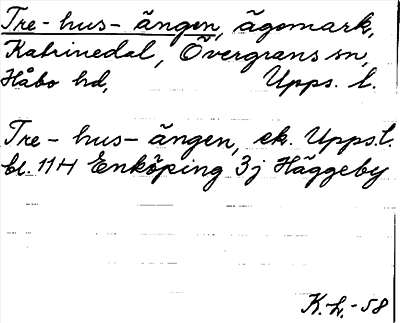 Tre-hus-ängen, ägomark,
Katrinedal, Övergrans sn,
Håbo hd, Upps. l.
Tre-hus-ängen, ek. Upps.l.
bl. 11H Enköping 3j Häggeby
K.L.-58